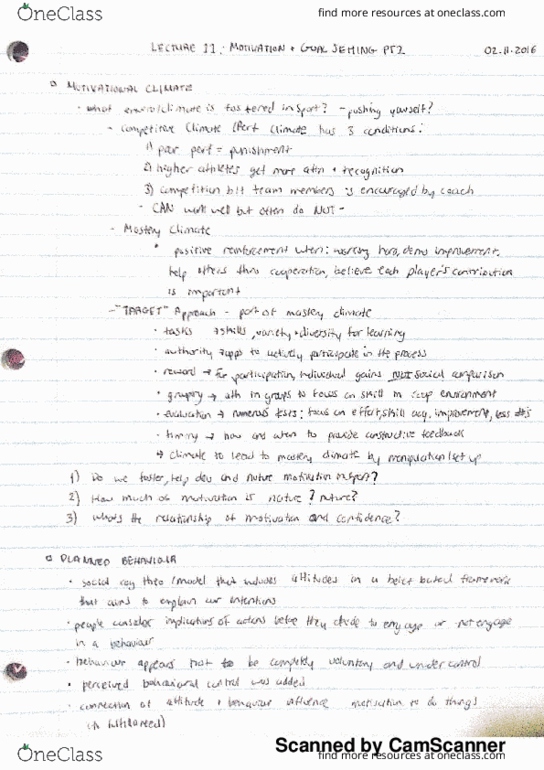 OneClass
find more resources at oneclass.com
LECTURE 11: MOTIVATION + GOAL SETTING PT2 02.11.2016
MOTIVATIONAL CLIMATE
- what environ/climate is fostered in sport? - pushing yourself?
- Competitive Climate (Perf Climate has 3 conditions:
1) poor perf = punishment
2) higher athletes get more attn + recognition
3) competition b/t team members is encouraged by coach
- CAN work well but often do NOT -
- Mastery Climate
positive reinforcement when: working hard, demo improvement,
help others thru cooperation, believe each player's contribution
is important
- "TARGET" Approach - part of mastery climate
tasks → skills, variety + diversity for learning
authority → opps to actively participate in the process
reward → for participation, individual gains NOT social comparison
grouping → ath in groups to focus on skill in coop environment
evaluation → numerous tests: focus on effort, skill acq, improvement, less
timing → how and when to provide constructive feedback
climate to lead to mastery climate by manipulation / set up
1) Do we foster, help dev and nurture motivation in sport?
2) How much of motivation is nature? nurture?
3) what's the relationship of motivation and confidence?
PLANNED BEHAVIOUR
social cog theo / model that includes attitudes in a belief based framework
that aims to explain our intentions
people consider implications of actions before they decide to engage or not engage
in a behaviour
behaviour appears not to be completely voluntary and under control
perceived behavioural control was added
connection of attitude + behaviour influence motivation to do things
Scanned by CamScanner
OneClass
find more resources at oneclass.com